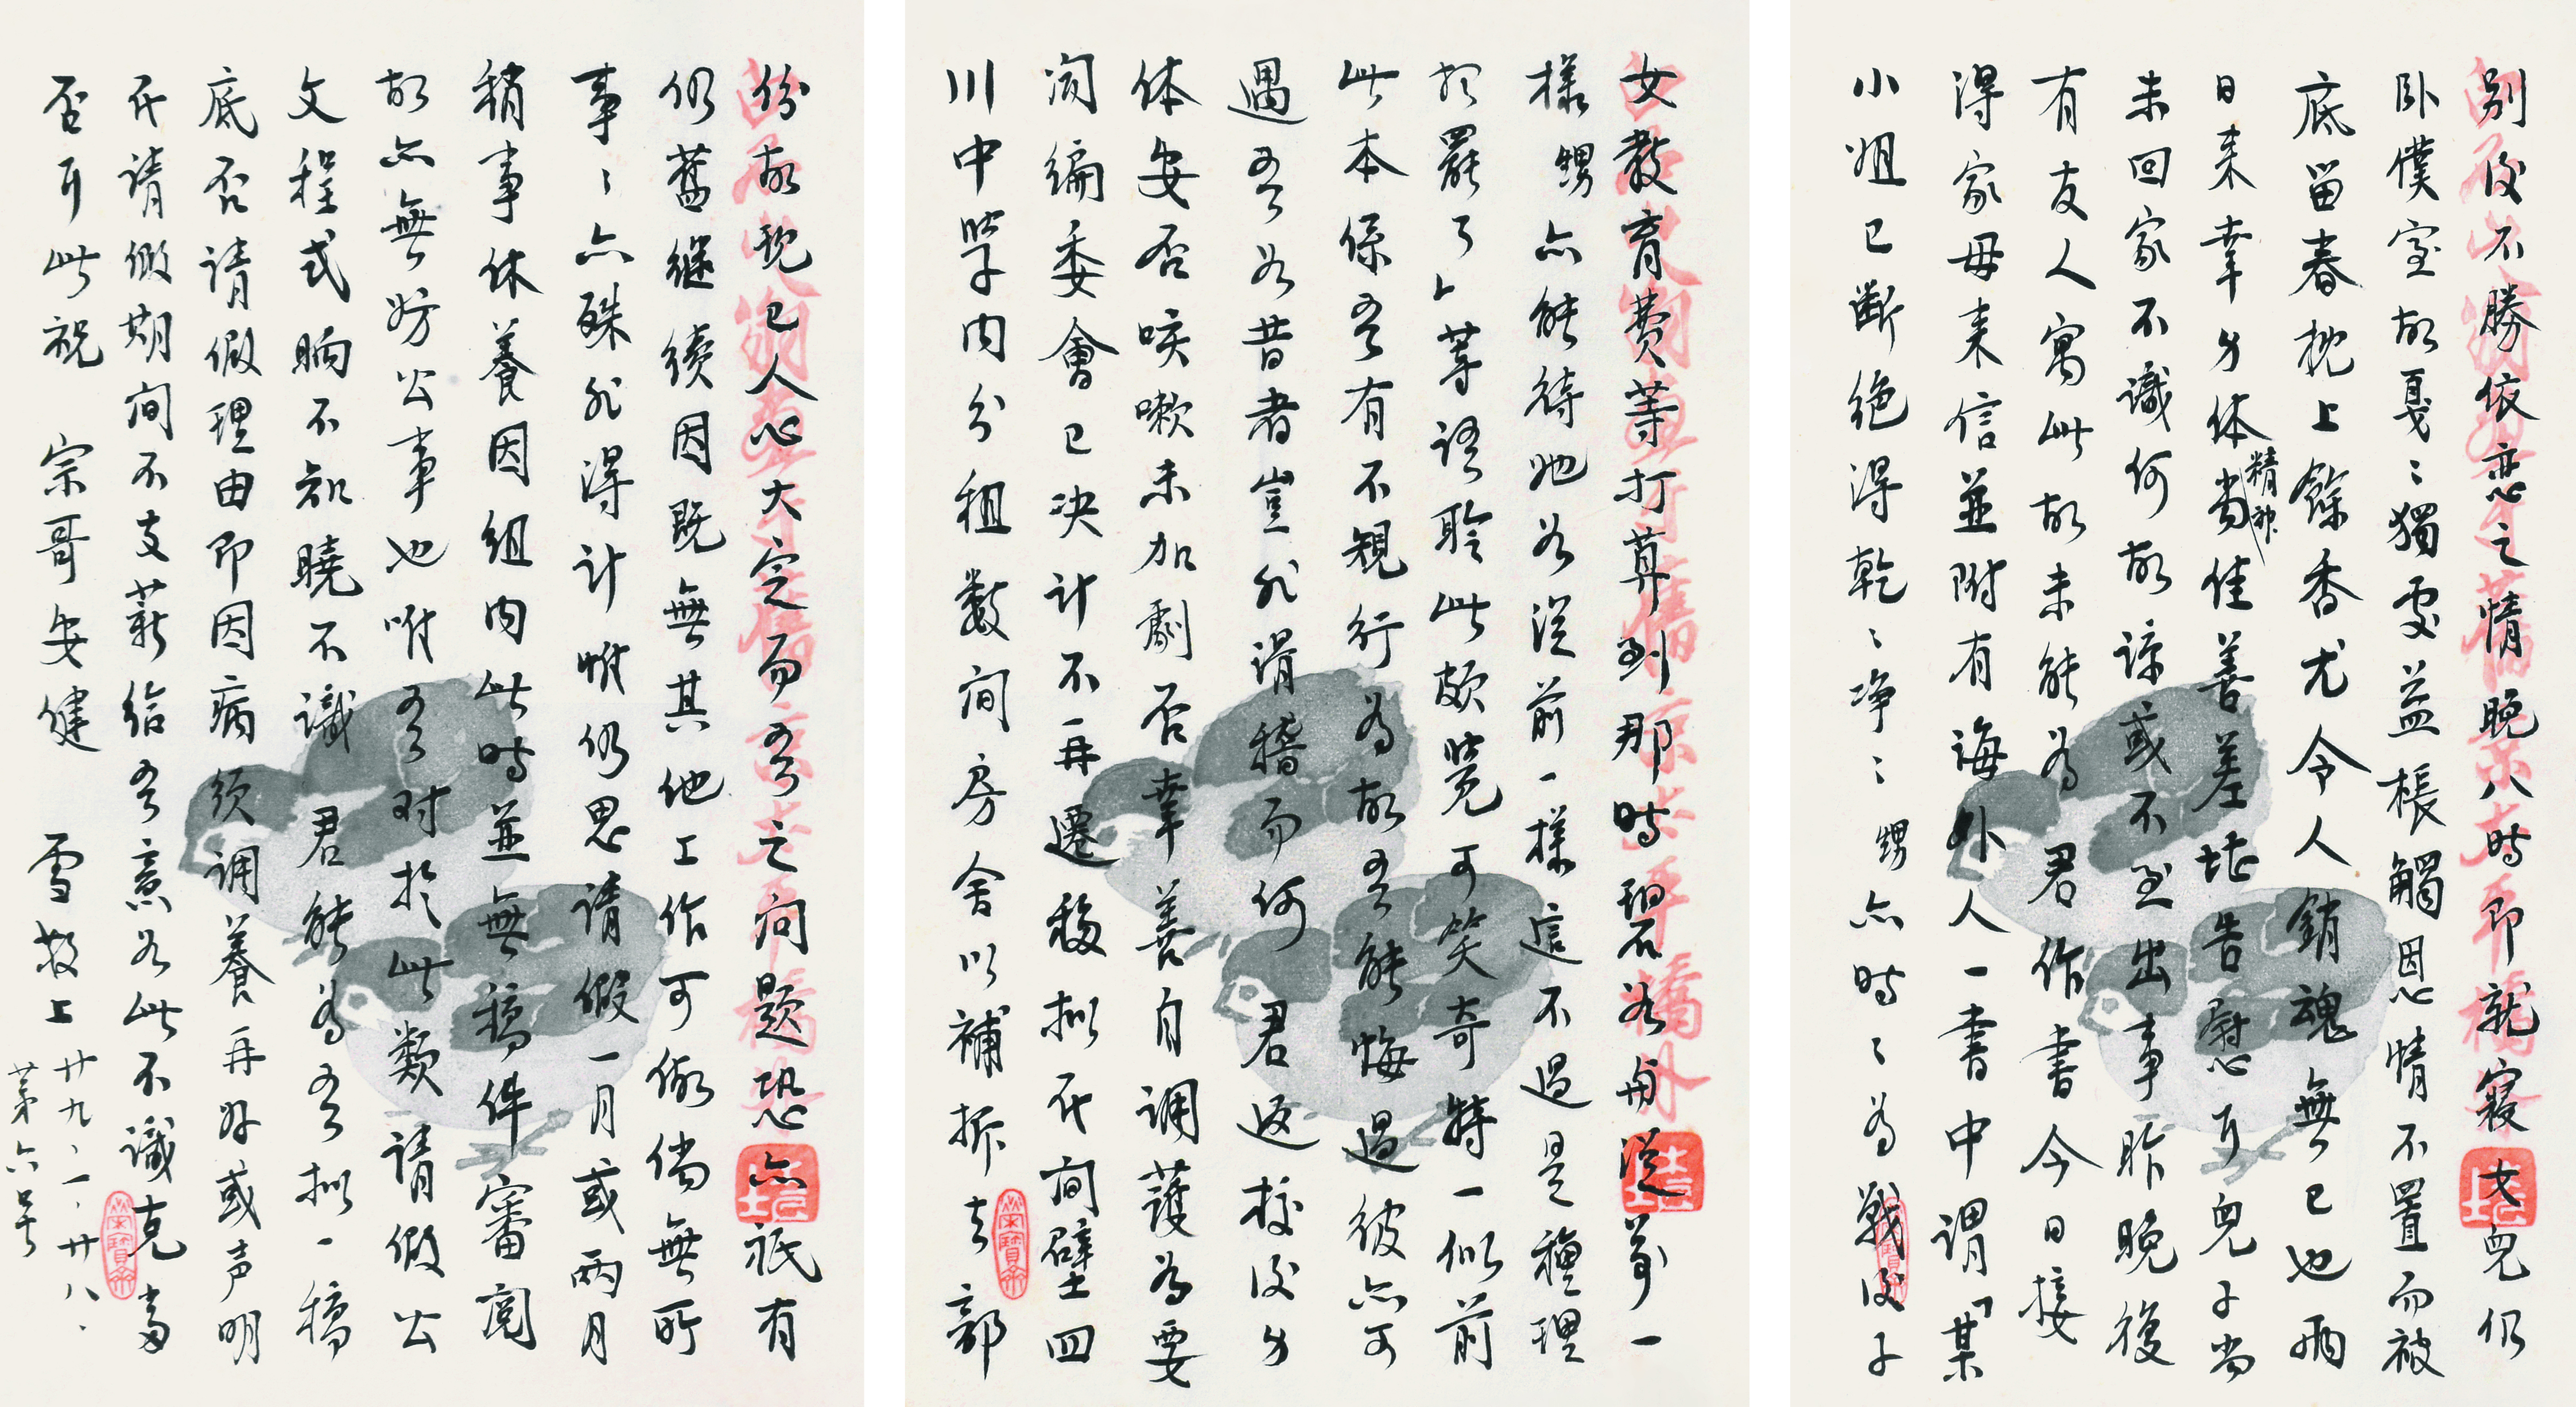 別後不勝依戀之情晚八時即就寢女兒仍
臥僕室故戛〻獨處益棖觸恩情不置而被
底留春枕上餘香尤令人銷魂無已也兩
日來幸身体尚精神佳善差堪告慰耳兒子尚
未回家不識何故諒或不至出事昨晚復
有友人寓此故未能為君作書今日接
得家母來信並附有誨外人一書中謂「某
小姐已斷絕得乾〻淨〻甥亦時〻為戰後子
女教育費等打算到那時碧如舟從前一
樣甥亦能待她如從前一樣這不過是種理
想罷了」等語聆此頗覺可笑奇特一似前
此本係吾有不規行為故吾能悔過彼亦可
遇吾如昔者豈非滑稽而何君返校後身
体安否咳嗽未加劇否幸善自調護為要
閱編委會已決計不再遷移擬在間壁四
川中學內分租數間房舍以補拆去部
份故現已人心大定而吾之問題恐亦祇有
仍舊繼續因既無其他工作可做倘無所
事〻亦殊非得計惟仍思請假一月或兩月
稍事休養因組內此時並無稿件審閱
故亦無妨公事也唯吾對於此類請假公
文程式晌不知曉不識君能為吾擬一稿
底否請假理由即因病須調養再好或声明
在請假期間不支薪給吾意如此不識克當
否耳此祝 宗哥安健 雪敬上 廿九、一、廿八、
第六號
榮寶齋